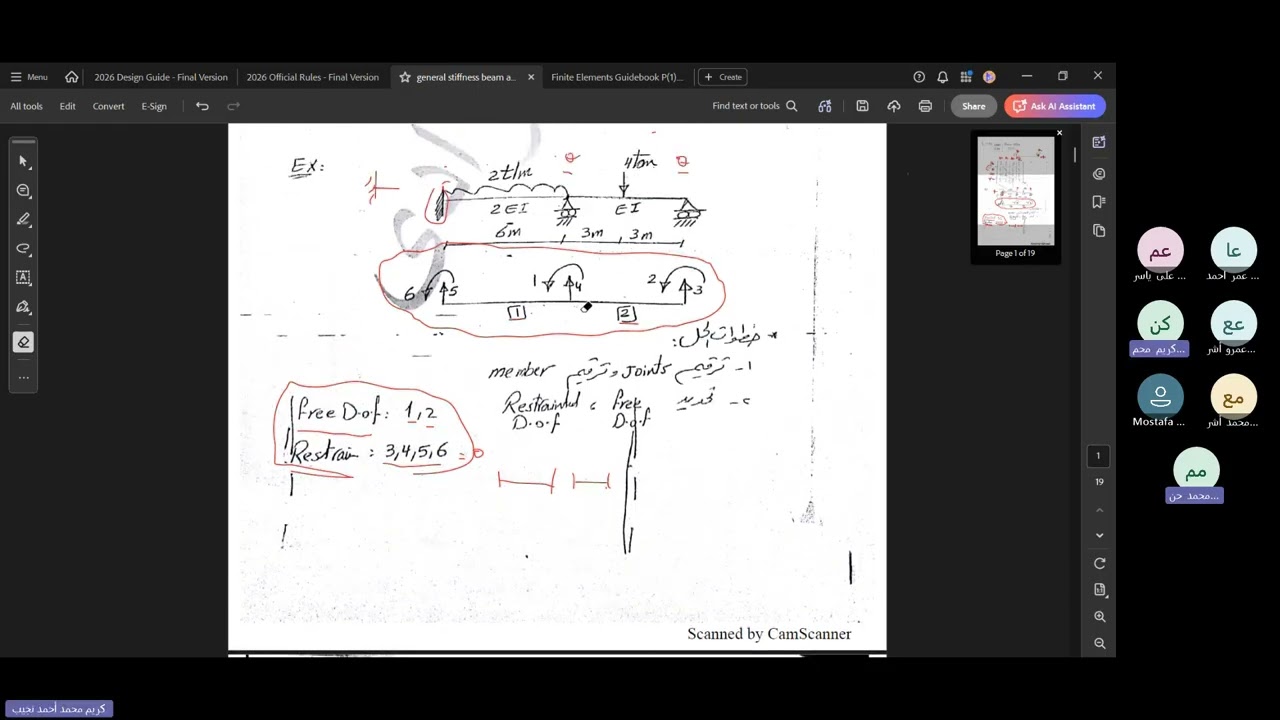 Menu
2026 Design Guide - Final Version
2026 Official Rules - Final Version
general stiffness beam a...
Finite Elements Guidebook P(1)...
Create
All tools
Edit
Convert
E-Sign
Find text or tools
Share
Ask AI Assistant
Ex:
2t/m
θ
4ton
θ
2EI
EI
6m
3m
3m
6
5
1
4
2
3
1
2
* خطوات الحل:
١- ترقيم Joints وترقيم member
٢- تحديد Free , Restrained
D.o.f D.o.f
Free D.o.f: 1,2
Restrain: 3,4,5,6 = 0
Scanned by CamScanner
Page 1 of 19
1
19
عم
... على ياسر
عا
... عمر احمد
كن
كريم محم...
عع
...عمرو أشر
Mostafa ...
مع
...محمد أشر
مم
...محمد حن
كريم محمد أحمد نجيب